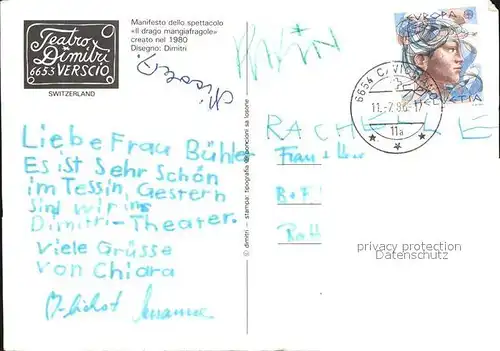 Teatro
Dimitri
6653 VERSCIO
SWITZERLAND
Manifesto dello spettacolo
«Il drago mangiafragole»
creato nel 1980
Disegno: Dimitri
EUROPA
HELVETIA
11.-7.86.-17
11a
RACHELE
Liebe Frau Bühler
Es ist sehr schön
im Tessin, Gestern
sind wir ins
Dimitri-Theater.
Viele Grüsse
von Chiara
© dimitri – stampa: tipografia dei poncioni sa losone
Frau +
privacy protection
Datenschutz